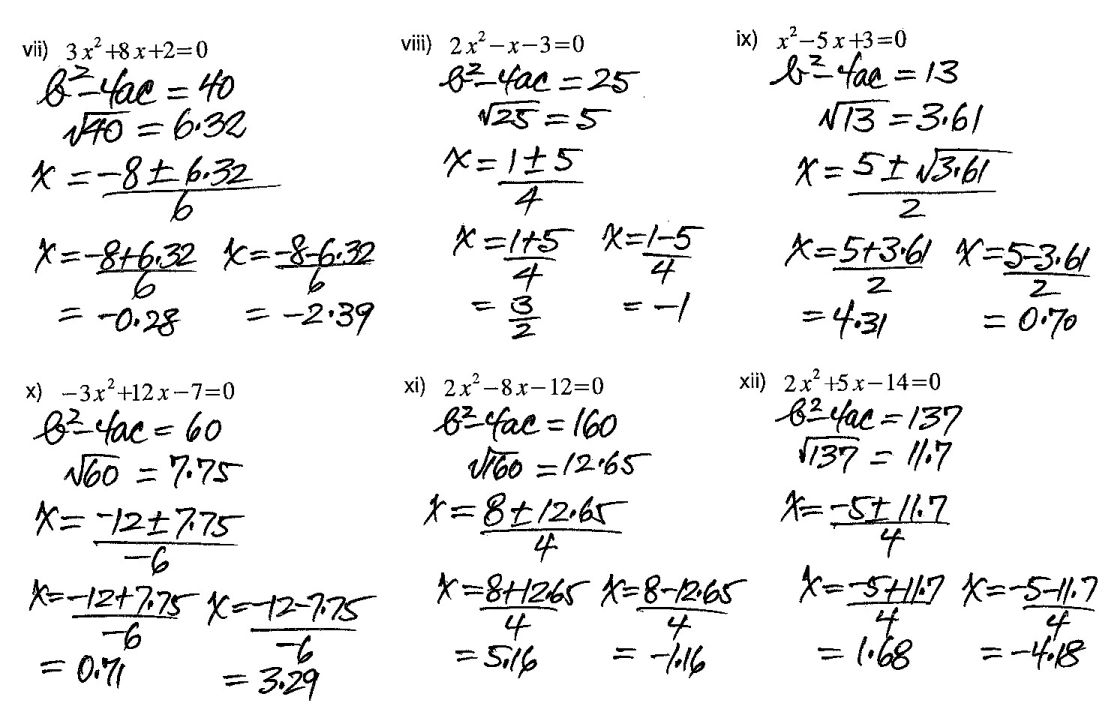 vii) 3x²+8x+2=0
b²-4ac = 40
√40 = 6.32
x = (-8 ± 6.32)/6
x = (-8+6.32)/6 x = (-8-6.32)/6
= -0.28 = -2.39
viii) 2x²-x-3=0
b²-4ac = 25
√25 = 5
x = (1 ± 5)/4
x = (1+5)/4 x = (1-5)/4
= 3/2 = -1
ix) x²-5x+3=0
b²-4ac = 13
√13 = 3.61
x = (5 ± √3.61)/2
x = (5+3.61)/2 x = (5-3.61)/2
= 4.31 = 0.70
x) -3x²+12x-7=0
b²-4ac = 60
√60 = 7.75
x = (-12 ± 7.75)/-6
x = (-12+7.75)/-6 x = (-12-7.75)/-6
= 0.71 = 3.29
xi) 2x²-8x-12=0
b²-4ac = 160
√160 = 12.65
x = (8 ± 12.65)/4
x = (8+12.65)/4 x = (8-12.65)/4
= 5.16 = -1.16
xii) 2x²+5x-14=0
b²-4ac = 137
√137 = 11.7
x = (-5 ± 11.7)/4
x = (-5+11.7)/4 x = (-5-11.7)/4
= 1.68 = -4.18